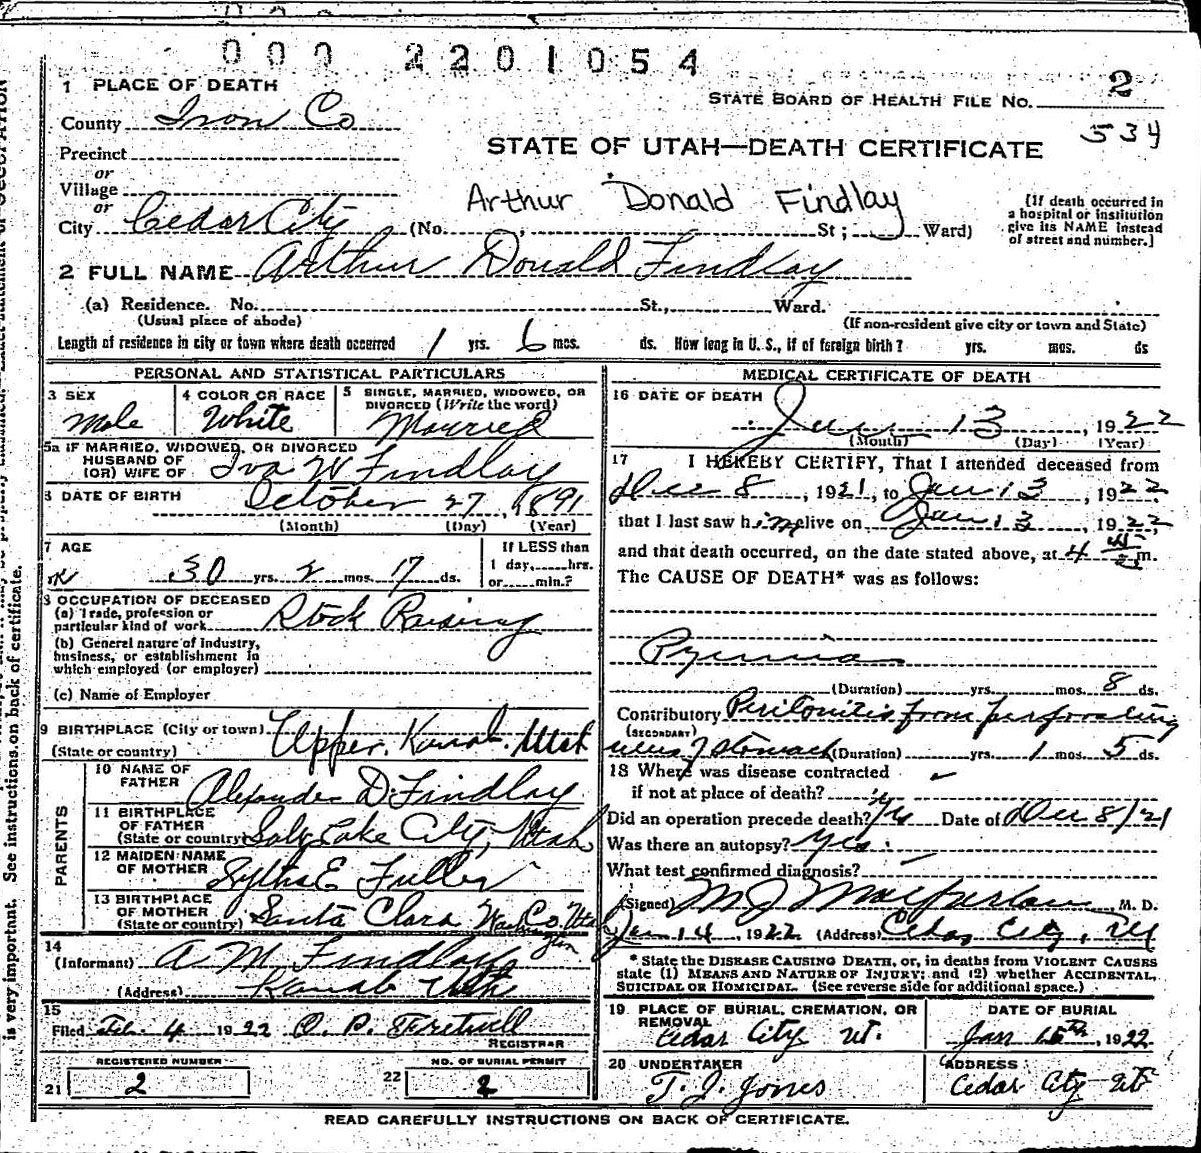 000 2201054
1 PLACE OF DEATH
STATE BOARD OF HEALTH FILE NO. 2
County Iron Co
534
STATE OF UTAH—DEATH CERTIFICATE
Precinct
or
Village
or
Arthur Donald Findlay
[If death occurred in
a hospital or institution
give its NAME instead
of street and number.]
City Cedar City (No. St; Ward)
2 FULL NAME Arthur Donald Findlay
(a) Residence. No. St., Ward.
(Usual place of abode) (If non-resident give city or town and State)
Length of residence in city or town where death occurred 1 yrs. 6 mos. ds. How long in U. S., if of foreign birth? yrs. mos. ds
PERSONAL AND STATISTICAL PARTICULARS
3 SEX 4 COLOR OR RACE 5 SINGLE, MARRIED, WIDOWED, OR
DIVORCED (Write the word)
Male White Married
5a IF MARRIED, WIDOWED, OR DIVORCED
HUSBAND OF
(OR) WIFE OF Iva W Findlay
6 DATE OF BIRTH October 27, 1891
(Month) (Day) (Year)
7 AGE If LESS than
1 day, hrs.
or min.?
30 yrs. 2 mos. 17 ds.
8 OCCUPATION OF DECEASED
(a) Trade, profession or
particular kind of work Stock Raising
(b) General nature of industry,
business, or establishment in
which employed (or employer)
(c) Name of Employer
9 BIRTHPLACE (City or town) Upper Kanab, Utah
(State or country)
PARENTS
10 NAME OF
FATHER Alexander D. Findlay
11 BIRTHPLACE
OF FATHER
(State or country) Salt Lake City, Utah
12 MAIDEN NAME
OF MOTHER Fuller
13 BIRTHPLACE
OF MOTHER
(State or country) Santa Clara Washington Co Utah
14
(Informant) A M Findlay
(Address) Kanab Utah
15
Filed Feb. 4 1922 Fretwell
REGISTRAR
REGISTERED NUMBER NO. OF BURIAL PERMIT
21 2 22 2
MEDICAL CERTIFICATE OF DEATH
16 DATE OF DEATH
Jan 13, 1922
(Month) (Day) (Year)
17 I HEREBY CERTIFY, That I attended deceased from
Dec 8, 1921, to Jan 13, 1922
that I last saw him alive on Jan 13, 1922,
and that death occurred, on the date stated above, at 4 m.
The CAUSE OF DEATH* was as follows:
Pyemia
(Duration) yrs. mos. 8 ds.
Contributory Peritonitis from perforating
(SECONDARY)
ulcus of stomach (Duration) yrs. 1 mos. 5 ds.
18 Where was disease contracted
if not at place of death?
Did an operation precede death? yes Date of Dec 8/21
Was there an autopsy? yes
What test confirmed diagnosis?
(Signed) M J Macfarlane, M. D.
Jan 14, 1922 (Address) Cedar City, Ut
* State the DISEASE CAUSING DEATH, or, in deaths from VIOLENT CAUSES
state (1) MEANS AND NATURE OF INJURY; and (2) whether ACCIDENTAL,
SUICIDAL OR HOMICIDAL. (See reverse side for additional space.)
19 PLACE OF BURIAL, CREMATION, OR
REMOVAL
Cedar City Ut.
DATE OF BURIAL
Jan 15th, 1922
20 UNDERTAKER
T. J. Jones
ADDRESS
Cedar City Ut
READ CAREFULLY INSTRUCTIONS ON BACK OF CERTIFICATE.
is very important. See instructions on back of certificate.